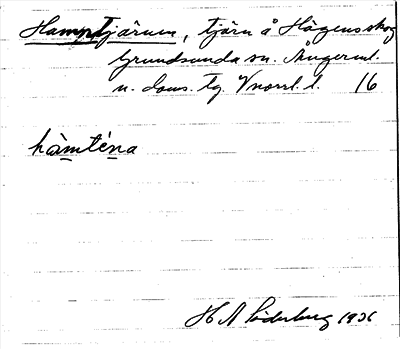 Hamptjärnen, tjärn å Högens skog
Grundsunda sn. Ångerml.
n. doms. tg. Vnorrl. l. 16
hàmténa
H A Söderberg 1931